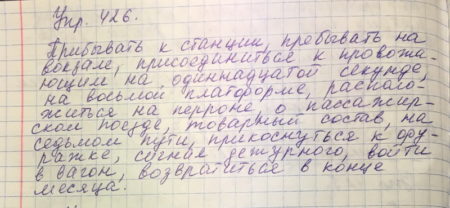 Упр. 426.
Прибывать к станции, пребывать на
вокзале, присоединиться к провожа-
ющим на одиннадцатой секунде,
на восьмой платформе, располо-
житься на перроне, о пассажир-
ском поезде, товарный состав на
седьмом пути, прикоснуться к фу-
ражке, сигнал дежурного, войти
в вагон, возвратиться в конце
месяца.